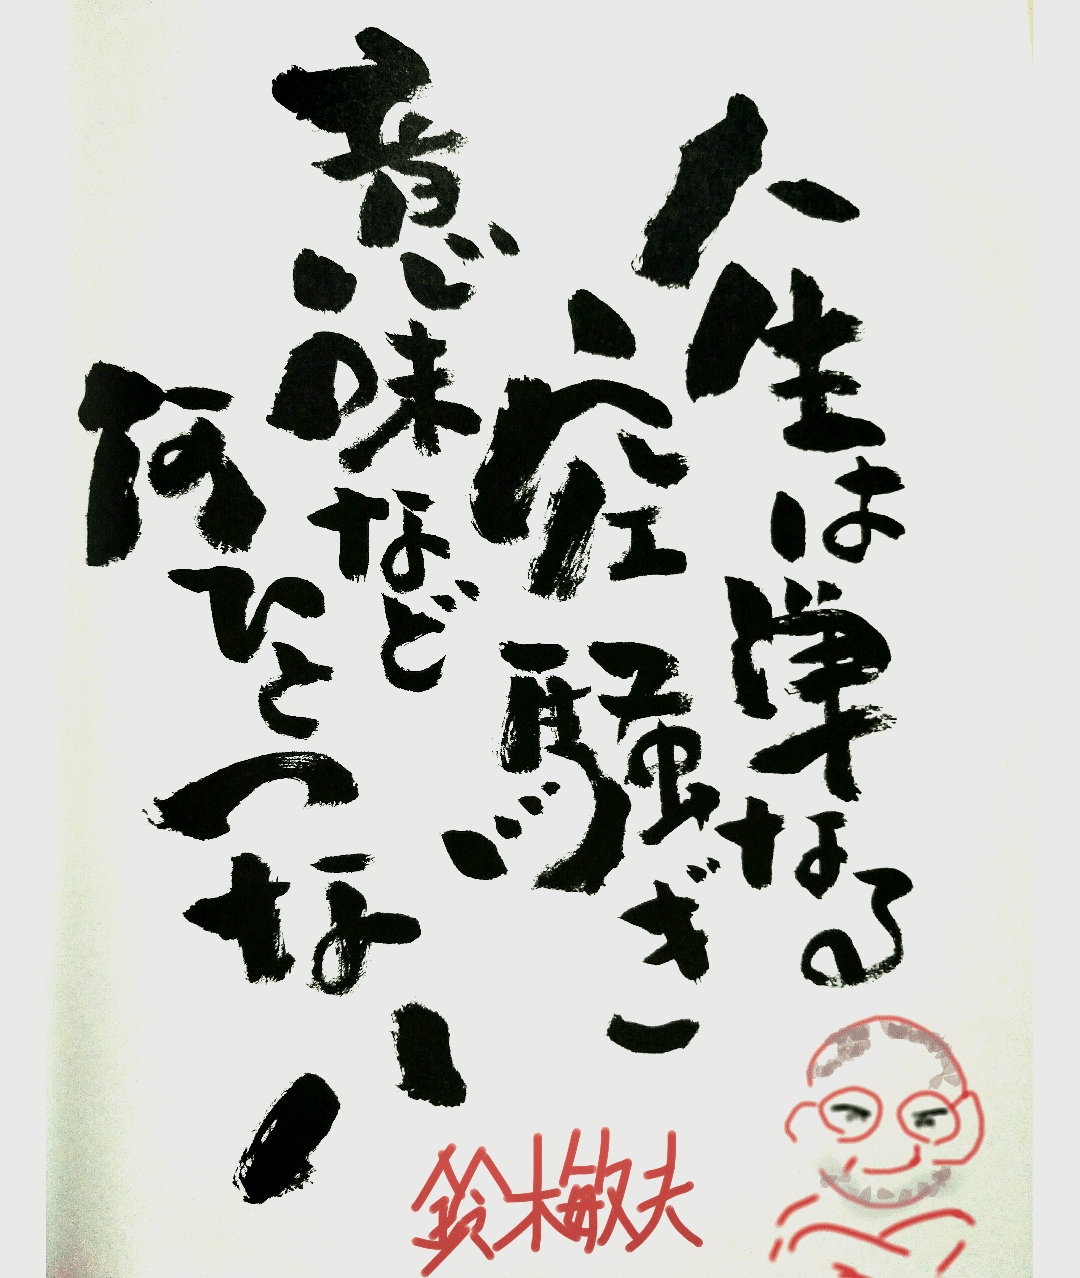 人生は単なる
空騒ぎ
意味など
何ひとつない
鈴木敏夫